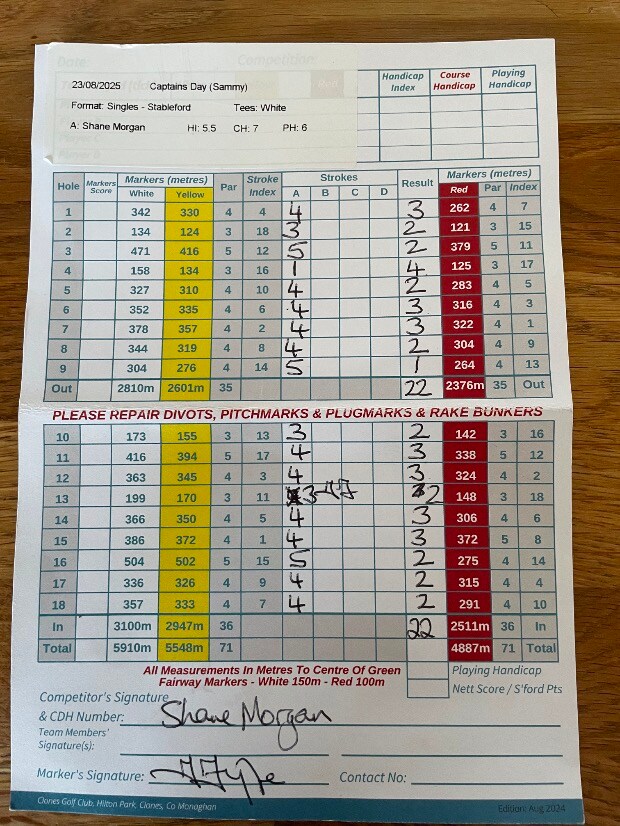 Date: Competition:
23/08/2025 Captains Day (Sammy)
Format: Singles - Stableford Tees: White
A: Shane Morgan HI: 5.5 CH: 7 PH: 6
Handicap Index Course Handicap Playing Handicap
Hole Markers Score Markers (metres) White Yellow Par Stroke Index Strokes A B C D Result Markers (metres) Red Par Index
1 342 330 4 4 4 3 262 4 7
2 134 124 3 18 3 2 121 3 15
3 471 416 5 12 5 2 379 5 11
4 158 134 3 16 1 4 125 3 17
5 327 310 4 10 4 2 283 4 5
6 352 335 4 6 4 3 316 4 3
7 378 357 4 2 4 3 322 4 1
8 344 319 4 8 4 2 304 4 9
9 304 276 4 14 5 1 264 4 13
Out 2810m 2601m 35 22 2376m 35 Out
PLEASE REPAIR DIVOTS, PITCHMARKS & PLUGMARKS & RAKE BUNKERS
10 173 155 3 13 3 2 142 3 16
11 416 394 5 17 4 3 338 5 12
12 363 345 4 3 4 3 324 4 2
13 199 170 3 11 3 2 148 3 18
14 366 350 4 5 4 3 306 4 6
15 386 372 4 1 4 3 372 5 8
16 504 502 5 15 5 2 275 4 14
17 336 326 4 9 4 2 315 4 4
18 357 333 4 7 4 2 291 4 10
In 3100m 2947m 36 22 2511m 36 In
Total 5910m 5548m 71 4887m 71 Total
All Measurements In Metres To Centre Of Green
Fairway Markers - White 150m - Red 100m
Playing Handicap
Nett Score / S'ford Pts
Competitor's Signature
& CDH Number: Shane Morgan
Team Members'
Signature(s):
Marker's Signature: Contact No:
Clones Golf Club, Hilton Park, Clones, Co Monaghan Edition: Aug 2024